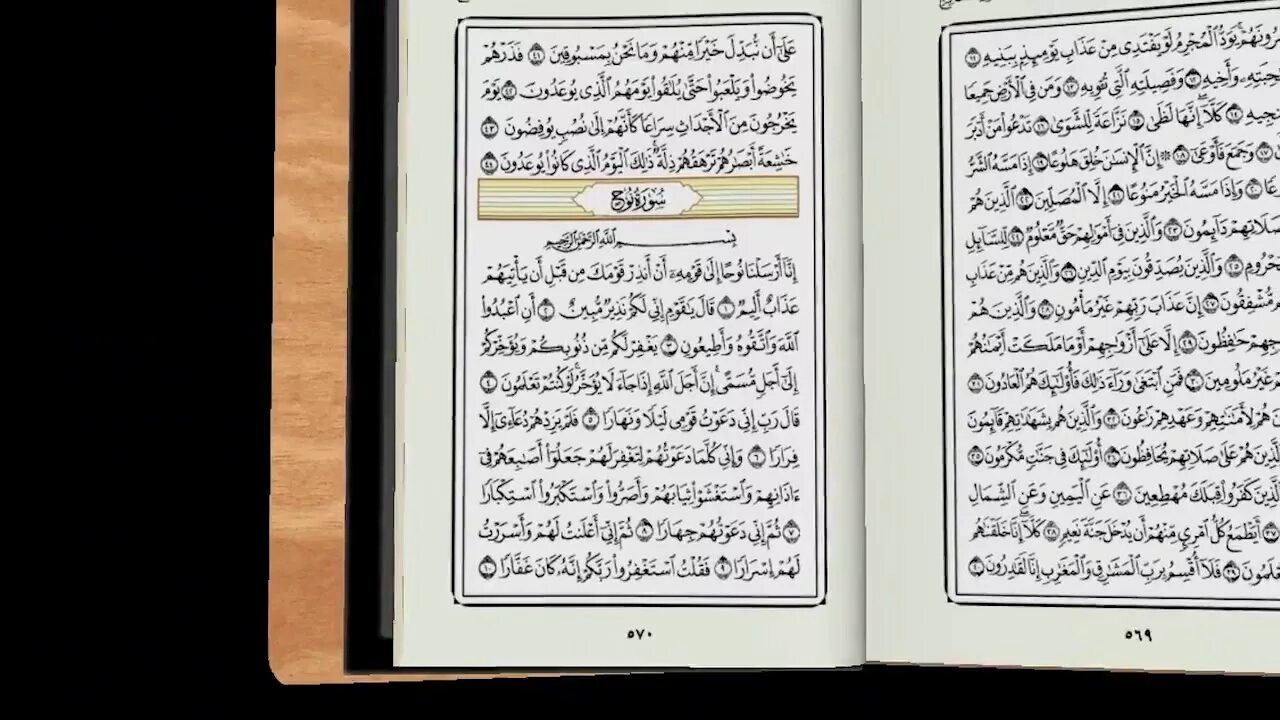 يُبَصَّرُونَهُمْ ۚ يَوَدُّ ٱلْمُجْرِمُ لَوْ يَفْتَدِى مِنْ عَذَابِ يَوْمِئِذٍۭ بِبَنِيهِ ١١
وَأَخِيهِ ١٢ وَفَصِيلَتِهِ ٱلَّتِى تُـْٔوِيهِ ١٣ وَمَن فِى ٱلْأَرْضِ جَمِيعًا
١٤ كَلَّآ ۖ إِنَّهَا لَظَىٰ ١٥ نَزَّاعَةً لِّلشَّوَىٰ ١٦ تَدْعُوا۟ مَنْ أَدْبَرَ
١٧ وَجَمَعَ فَأَوْعَىٰٓ ١٨ ۞ إِنَّ ٱلْإِنسَـٰنَ خُلِقَ هَلُوعًا ١٩ إِذَا مَسَّهُ ٱلشَّرُّ
٢٠ وَإِذَا مَسَّهُ ٱلْخَيْرُ مَنُوعًا ٢١ إِلَّا ٱلْمُصَلِّينَ ٢٢ ٱلَّذِينَ هُمْ
صَلَاتِهِمْ دَآئِمُونَ ٢٣ وَٱلَّذِينَ فِىٓ أَمْوَٰلِهِمْ حَقٌّ مَّعْلُومٌ ٢٤ لِّلسَّآئِلِ
٢٥ وَٱلَّذِينَ يُصَدِّقُونَ بِيَوْمِ ٱلدِّينِ ٢٦ وَٱلَّذِينَ هُم مِّنْ عَذَابِ
مُّشْفِقُونَ ٢٧ إِنَّ عَذَابَ رَبِّهِمْ غَيْرُ مَأْمُونٍ ٢٨ وَٱلَّذِينَ هُمْ
حَـٰفِظُونَ ٢٩ إِلَّا عَلَىٰٓ أَزْوَٰجِهِمْ أَوْ مَا مَلَكَتْ أَيْمَـٰنُهُمْ
غَيْرُ مَلُومِينَ ٣٠ فَمَنِ ٱبْتَغَىٰ وَرَآءَ ذَٰلِكَ فَأُو۟لَـٰٓئِكَ هُمُ ٱلْعَادُونَ ٣١
هُمْ لِأَمَـٰنَـٰتِهِمْ وَعَهْدِهِمْ رَٰعُونَ ٣٢ وَٱلَّذِينَ هُم بِشَهَـٰدَٰتِهِمْ قَآئِمُونَ
هُمْ عَلَىٰ صَلَاتِهِمْ يُحَافِظُونَ ٣٤ أُو۟لَـٰٓئِكَ فِى جَنَّـٰتٍ مُّكْرَمُونَ ٣٥
ٱلَّذِينَ كَفَرُوا۟ قِبَلَكَ مُهْطِعِينَ ٣٦ عَنِ ٱلْيَمِينِ وَعَنِ ٱلشِّمَالِ
٣٧ أَيَطْمَعُ كُلُّ ٱمْرِئٍ مِّنْهُمْ أَن يُدْخَلَ جَنَّةَ نَعِيمٍ ٣٨ كَلَّآ ۖ إِنَّا خَلَقْنَـٰهُم
٣٩ فَلَآ أُقْسِمُ بِرَبِّ ٱلْمَشَـٰرِقِ وَٱلْمَغَـٰرِبِ إِنَّا لَقَـٰدِرُونَ ٤٠
٥٦٩
عَلَىٰٓ أَن نُّبَدِّلَ خَيْرًا مِّنْهُمْ وَمَا نَحْنُ بِمَسْبُوقِينَ ٤١ فَذَرْهُمْ
يَخُوضُوا۟ وَيَلْعَبُوا۟ حَتَّىٰ يُلَـٰقُوا۟ يَوْمَهُمُ ٱلَّذِى يُوعَدُونَ ٤٢ يَوْمَ
يَخْرُجُونَ مِنَ ٱلْأَجْدَاثِ سِرَاعًا كَأَنَّهُمْ إِلَىٰ نُصُبٍ يُوفِضُونَ ٤٣
خَـٰشِعَةً أَبْصَـٰرُهُمْ تَرْهَقُهُمْ ذِلَّةٌ ۚ ذَٰلِكَ ٱلْيَوْمُ ٱلَّذِى كَانُوا۟ يُوعَدُونَ ٤٤
سُورَةُ نُوحٍ
بِسْمِ ٱللَّهِ ٱلرَّحْمَـٰنِ ٱلرَّحِيمِ
إِنَّآ أَرْسَلْنَا نُوحًا إِلَىٰ قَوْمِهِۦٓ أَنْ أَنذِرْ قَوْمَكَ مِن قَبْلِ أَن يَأْتِيَهُمْ
عَذَابٌ أَلِيمٌ ١ قَالَ يَـٰقَوْمِ إِنِّى لَكُمْ نَذِيرٌ مُّبِينٌ ٢ أَنِ ٱعْبُدُوا۟
ٱللَّهَ وَٱتَّقُوهُ وَأَطِيعُونِ ٣ يَغْفِرْ لَكُم مِّن ذُنُوبِكُمْ وَيُؤَخِّرْكُمْ
إِلَىٰٓ أَجَلٍ مُّسَمًّى ۚ إِنَّ أَجَلَ ٱللَّهِ إِذَا جَآءَ لَا يُؤَخَّرُ ۖ لَوْ كُنتُمْ تَعْلَمُونَ ٤
قَالَ رَبِّ إِنِّى دَعَوْتُ قَوْمِى لَيْلًا وَنَهَارًا ٥ فَلَمْ يَزِدْهُمْ دُعَآءِىٓ إِلَّا
فِرَارًا ٦ وَإِنِّى كُلَّمَا دَعَوْتُهُمْ لِتَغْفِرَ لَهُمْ جَعَلُوٓا۟ أَصَـٰبِعَهُمْ فِىٓ
ءَاذَانِهِمْ وَٱسْتَغْشَوْا۟ ثِيَابَهُمْ وَأَصَرُّوا۟ وَٱسْتَكْبَرُوا۟ ٱسْتِكْبَارًا
٧ ثُمَّ إِنِّى دَعَوْتُهُمْ جِهَارًا ٨ ثُمَّ إِنِّىٓ أَعْلَنتُ لَهُمْ وَأَسْرَرْتُ
لَهُمْ إِسْرَارًا ٩ فَقُلْتُ ٱسْتَغْفِرُوا۟ رَبَّكُمْ إِنَّهُۥ كَانَ غَفَّارًا ١٠
٥٧٠